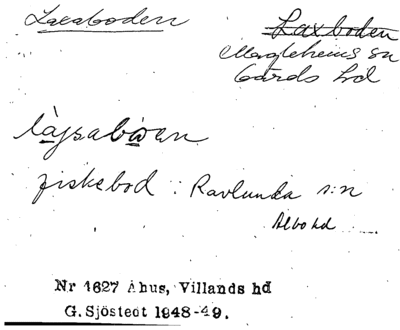 Laxaboden
Laxboden
Maglehems sn
Gärds hd
làjsabωen
fiskebod i Ravlunda s:n
Albo hd
Nr 1627 Åhus, Villands hd
G. Sjöstedt 1948-49.